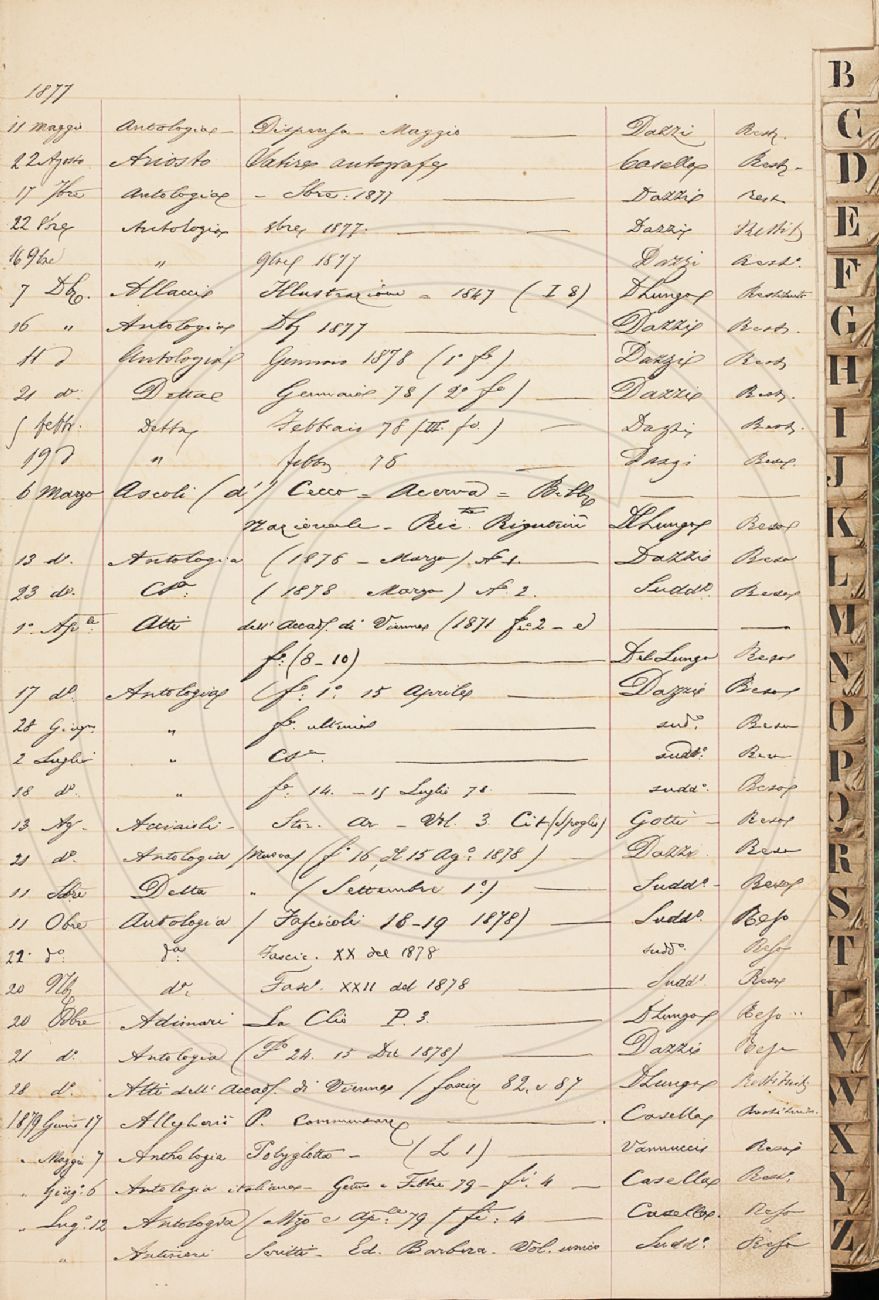 1877
11 Maggio Antologia - Dispensa Maggio Dazzi Rest.
22 Agosto Ariosto Satire autografe Casella Rest.
17 7bre Antologia - 7bre: 1877 Dazzi rest
22 8bre Antologia 8bre 1877. Dazzi Restit
16 9bre " 9bre 1877 Dazzi Rest.
7 Dbr. Allacci Illustrazione - 1847 (I 8) DLungo Restituito
16 " Antologia Dbr 1877 Dazzi Rest.
11 d Antologia Gennaio 1878 (1° fo) Dazzi Rest
21 do. Detta Gennaio 78 (2° fo) Dazzi Rest.
5 febbr. Detta Febbraio 78 (III. fo.) Dazzi Rest.
19 d " febbr 78 Dazzi Reso.
6 Marzo Ascoli (d') Cecco - Acerva - Bibl
Nazionale - Ric. Rigutini DLungo Reso
13 do. Antologia (1878 - Marzo) No 1. Dazzi Reso
23 do. Csa. (1878 Marzo) No. 2. Suddo. Reso
1° Ape. Atti dell' Accad. di Vienna (1871 fo. 2 - e
fo. (8-10) Del Lungo Reso
17 do. Antologia (fo. 1° 15 Aprile Dazzi Reso
28 Giugn. " fo. ultimo sudo. Reso
2 Luglio " Csa. suddo. Reso
18 do. " fo. 14. - 15 Luglio 78. suddo. Reso
13 Ag. Acciaioli - Stor. Ar - Vol. 3 Cit. (Spoglio) Gotti - Reso
21 do. Antologia (Nuova) (fo 16, Il 15 Ago. 1878) Dazzi Reso
11 Sbre Detta " (Settembre 1°) Suddo. - Reso
11 Obre Antologia (Fascicoli 18-19 1878) Suddo. Reso
22. do. da. Fascic. XX del 1878 suddo. Reso
20 Nbr do. Faso. XXII del 1878 Suddo Reso
20 Dbre Adimari La Clio P. 3. DLungo Reso "
21 do. Antologia (Fo 24. 15 Dic 1878) Dazzi Reso
28 do. Atti dell' Accad. di Vienna (fascic 82. e 87 DLungo Restituito
1879 Genno 17 Alleghieri P. Commentare Casella Restituito.
" Maggio 7 Anthologia Polyglotta - (L 1) Vannucci Reso
" Giugo. 6 Antologia italiana - Geno e Febbro 79 - fi. 4 Casella Reso.
" Lugo. 12 Antologia (Mzo e Aple 79 (fi: 4 Casella. Reso
" Antinori Scritti - Ed. Barbera. Vol. unico Suddo. Reso
B
C
D
E
F
G
H
I
J
K
L
M
N
O
P
Q
R
S
T
U
V
W
X
Y
Z